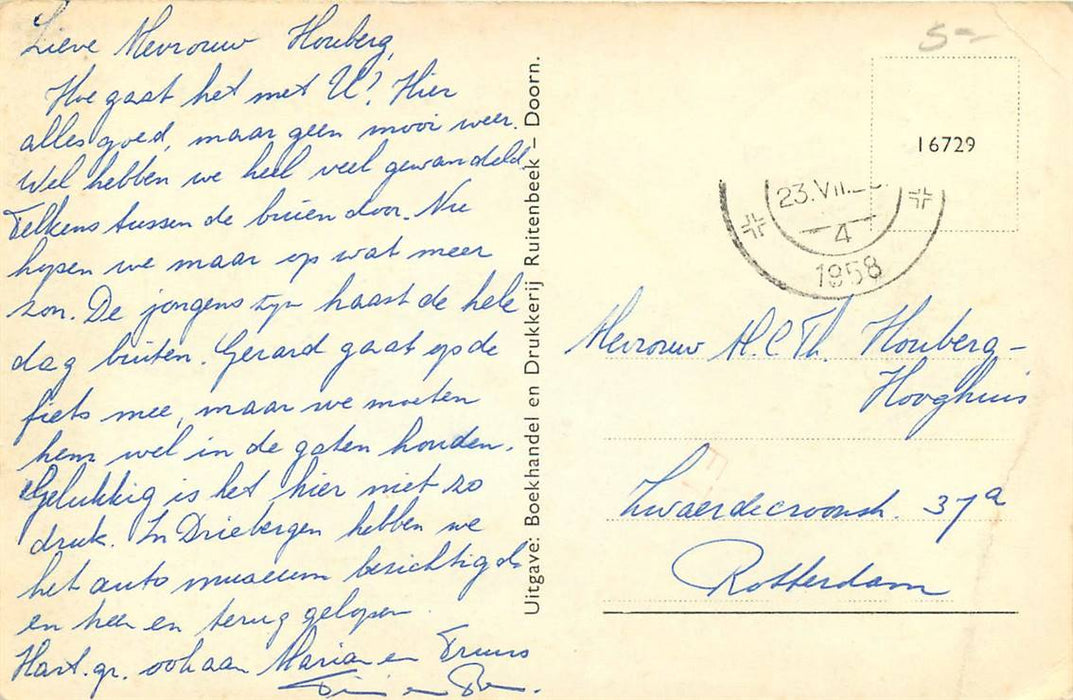 Lieve Mevrouw Houberg,
Hoe gaat het met U? Hier
alles goed, maar geen mooi weer.
Wel hebben we heel veel gewandeld
Telkens tussen de buien door. Nu
hopen we maar op wat meer
zon. De jongens zijn haast de hele
dag buiten. Gerard gaat op de
fiets mee, maar we moeten
hem wel in de gaten houden.
Gelukkig is het hier niet zo
druk. In Driebergen hebben we
het auto museum bezichtigd
en heen en terug gelopen.
Hart. gr. ook aan Maria en Truus
en
Uitgave: Boekhandel en Drukkerij Ruitenbeek – Doorn.
5-
16729
23.VII
4
1958
Mevrouw H.C.Th. Houberg-
Hooghuis
Zwaerdecroonstr. 37a
Rotterdam